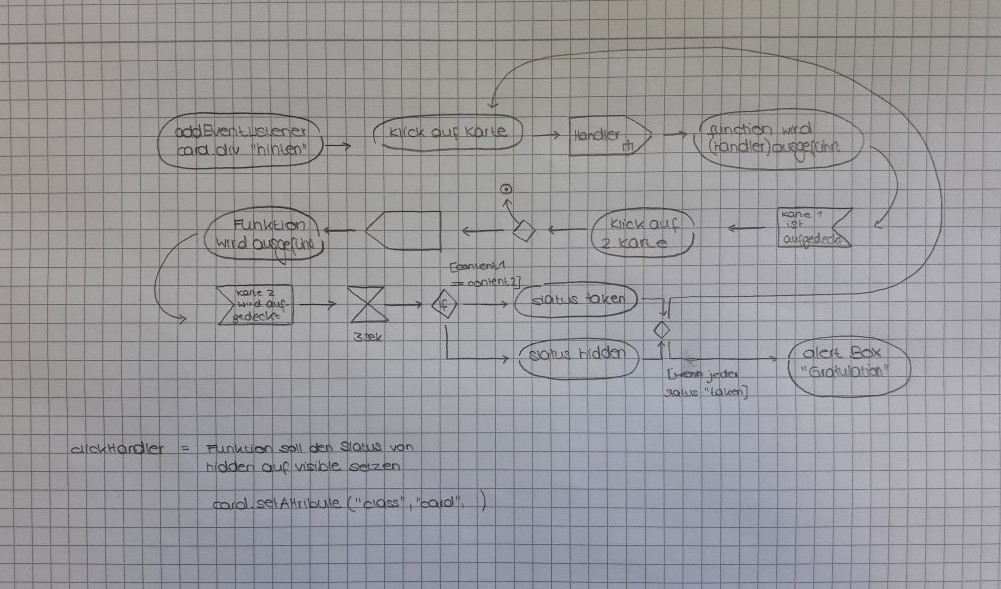 addEventListener
card.div "hinten"
klick auf Karte
Handler
function wird
(handler) ausgeführt
Karte 1
ist
aufgedeckt
klick auf
2 Karte
Funktion
wird ausgeführt
Karte 2
wird auf-
gedeckt
3 sek
[content1
== content2]
status taken
status hidden
[wenn jeder
status "taken]
alert Box
"Gratulation"
clickHandler = Funktion soll den Status von
hidden auf visible setzen
card.setAttribute ("class", "card". )